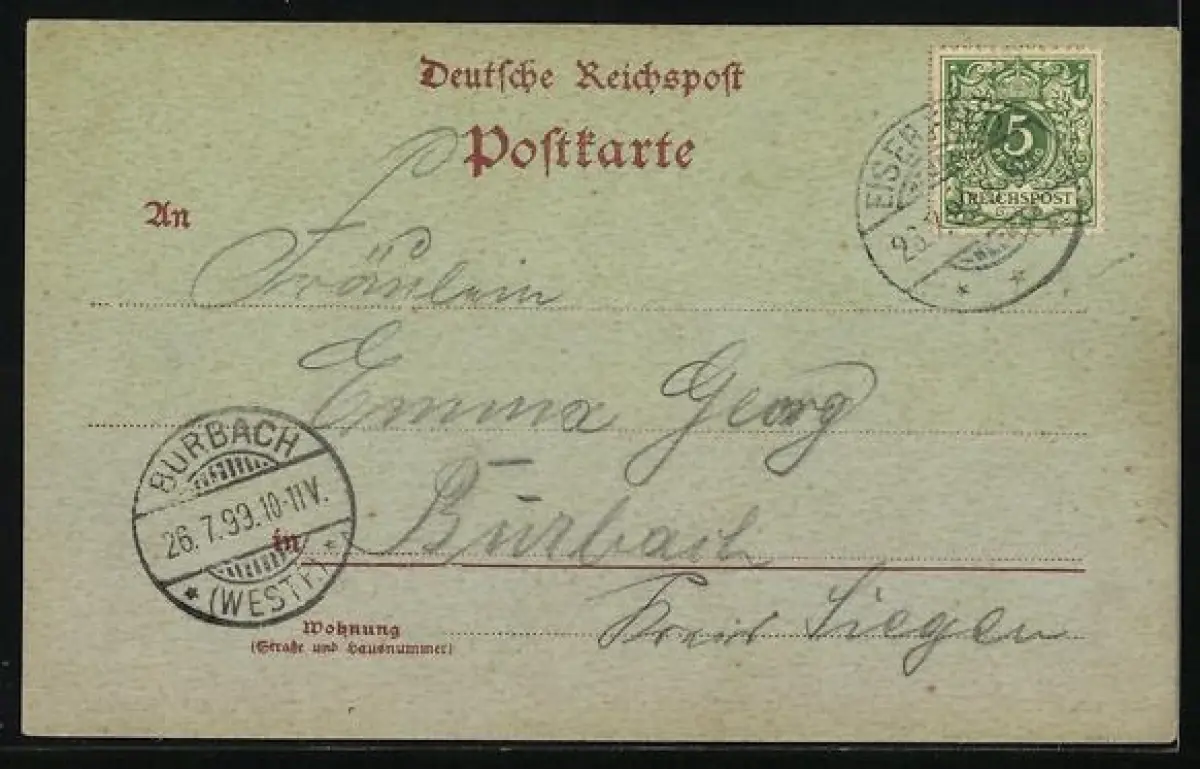 Deutsche Reichspost
Postkarte
An
5
REICHSPOST
Fräulein
Emma Georg
BURBACH
26.7.99.10-11V.
* (WESTF.) *
in Burbach
Wohnung
(Straße und Hausnummer)
Kreis Siegen